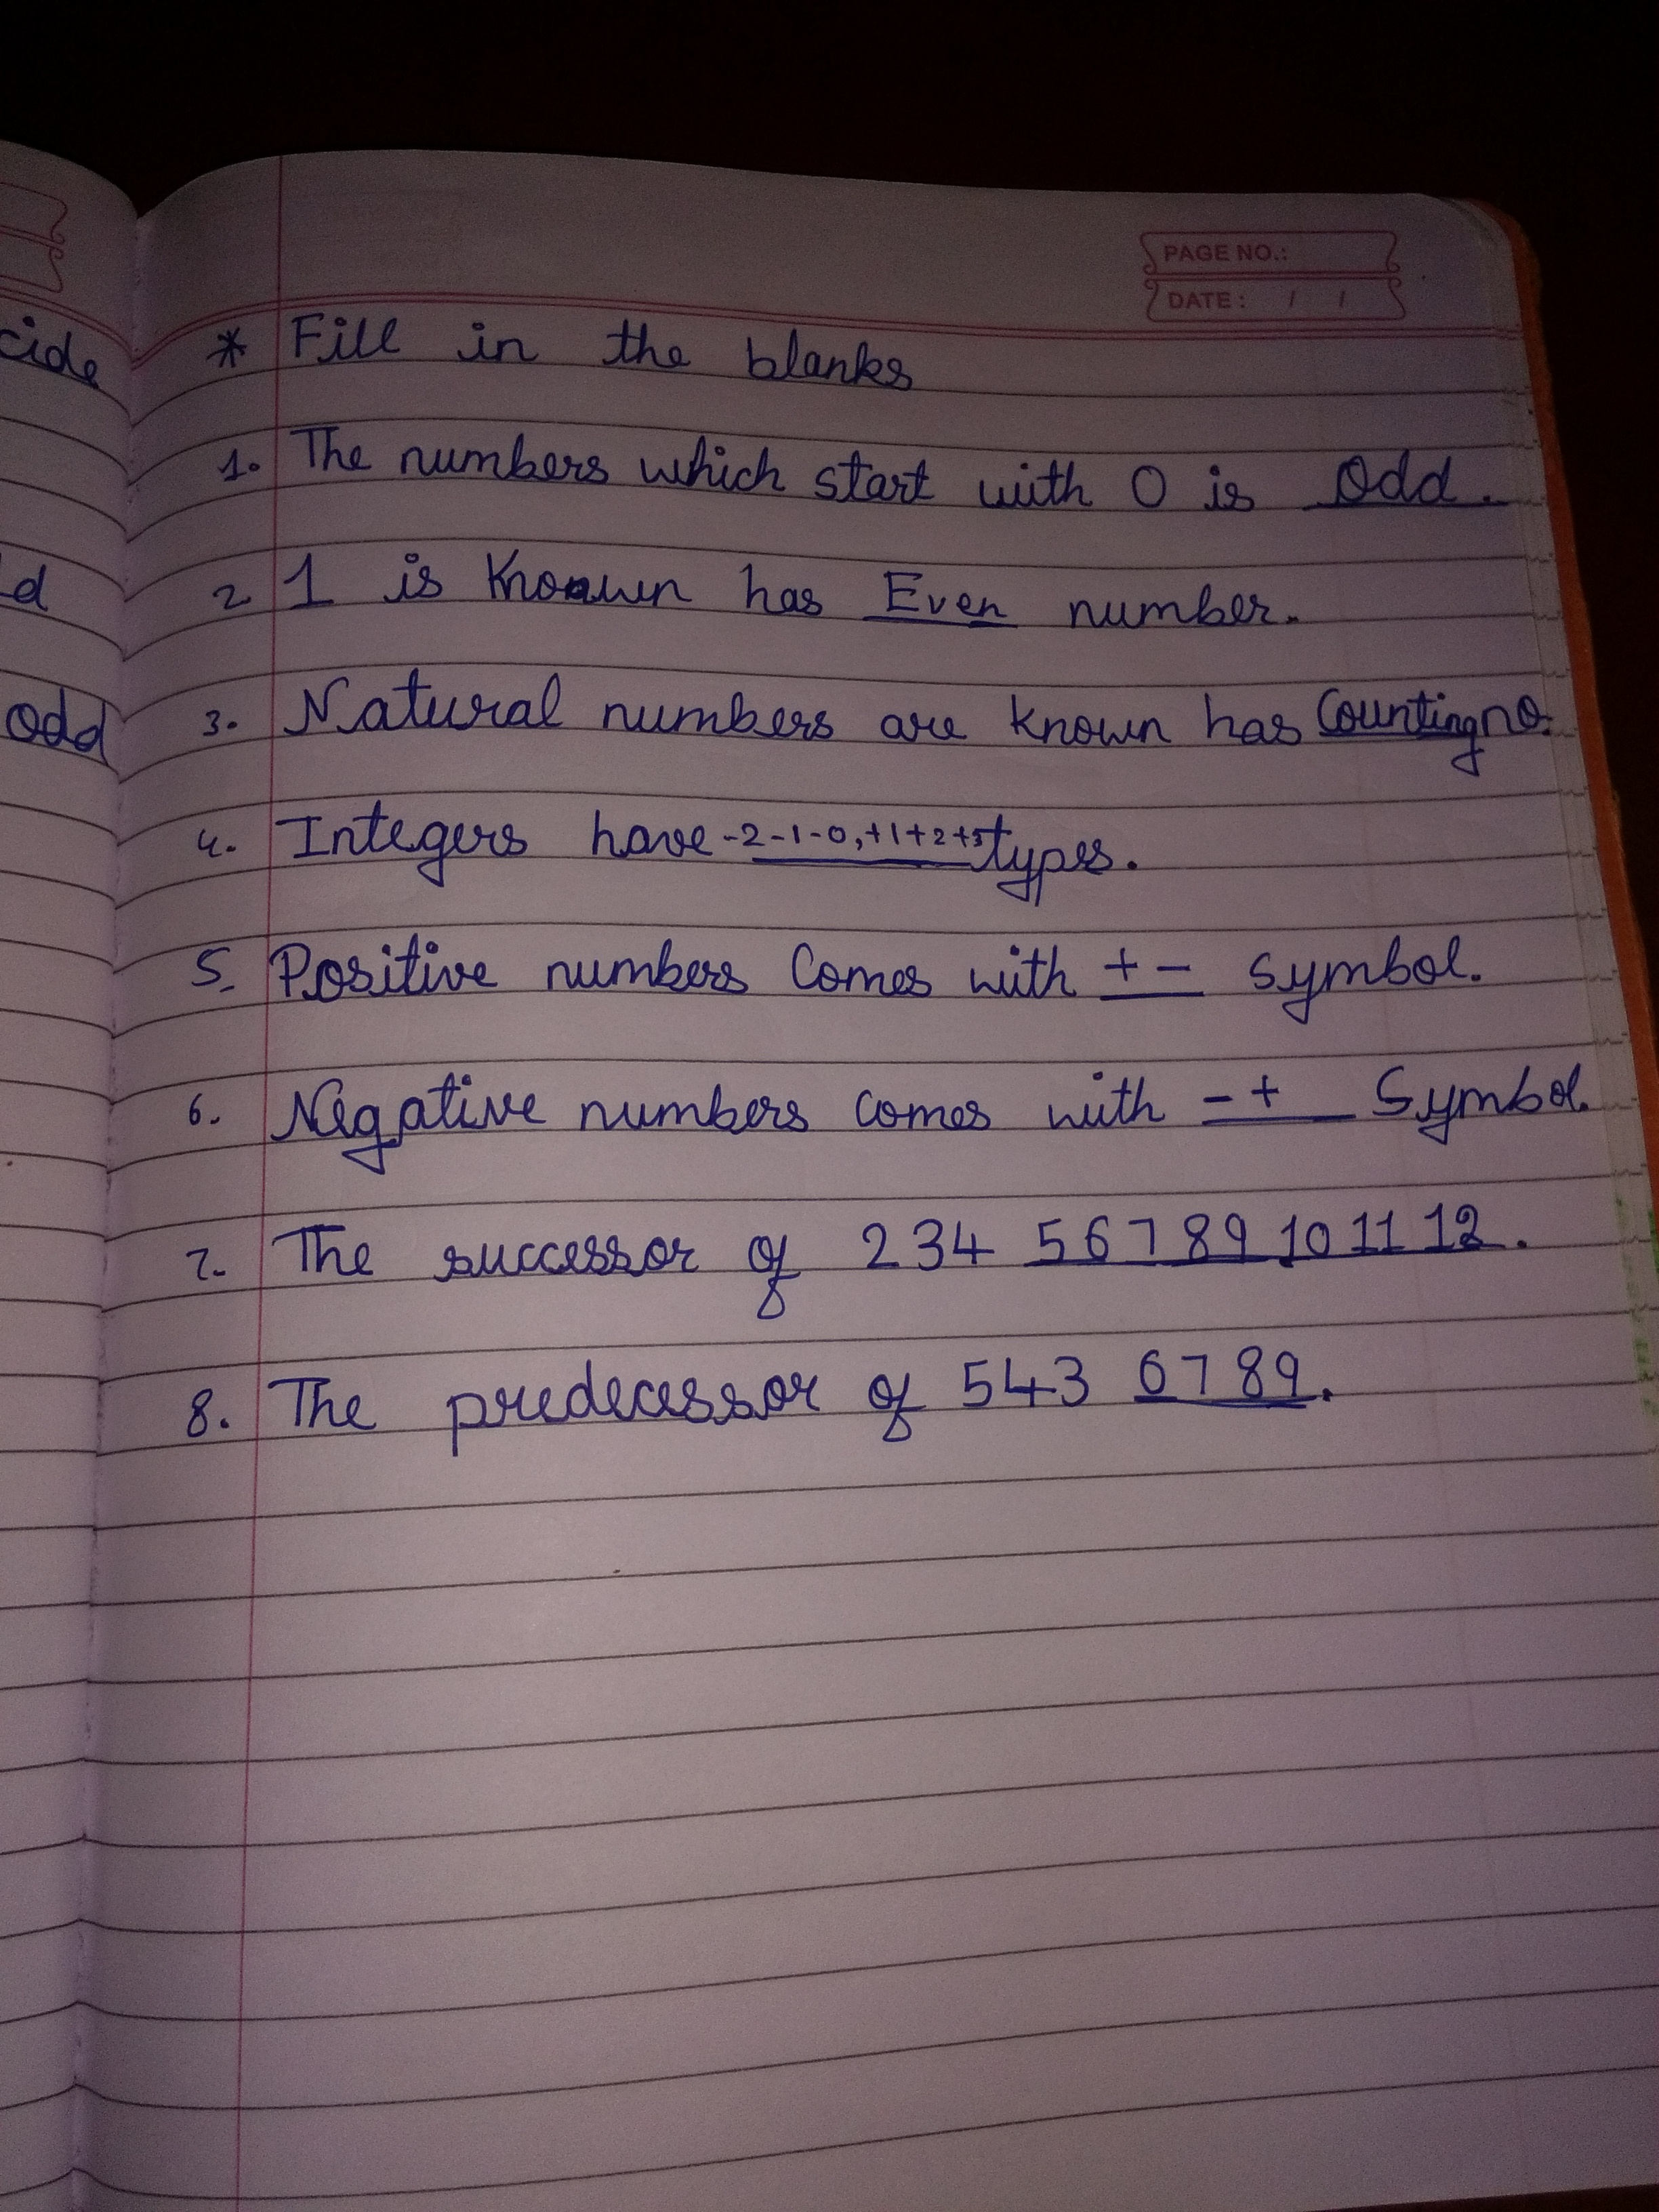 PAGE NO.:
DATE: / /
cide
d
odd
* Fill in the blanks
1. The numbers which start with 0 is Odd.
2. 1 is known has Even number.
3. Natural numbers are known has Counting no.
4. Integers have -2-1-0,+1+2+3 types.
5. Positive numbers Comes with + - symbol.
6. Negative numbers comes with - + Symbol.
7. The successor of 234 5 6 7 8 9 10 11 12.
8. The predecessor of 543 6 7 8 9.